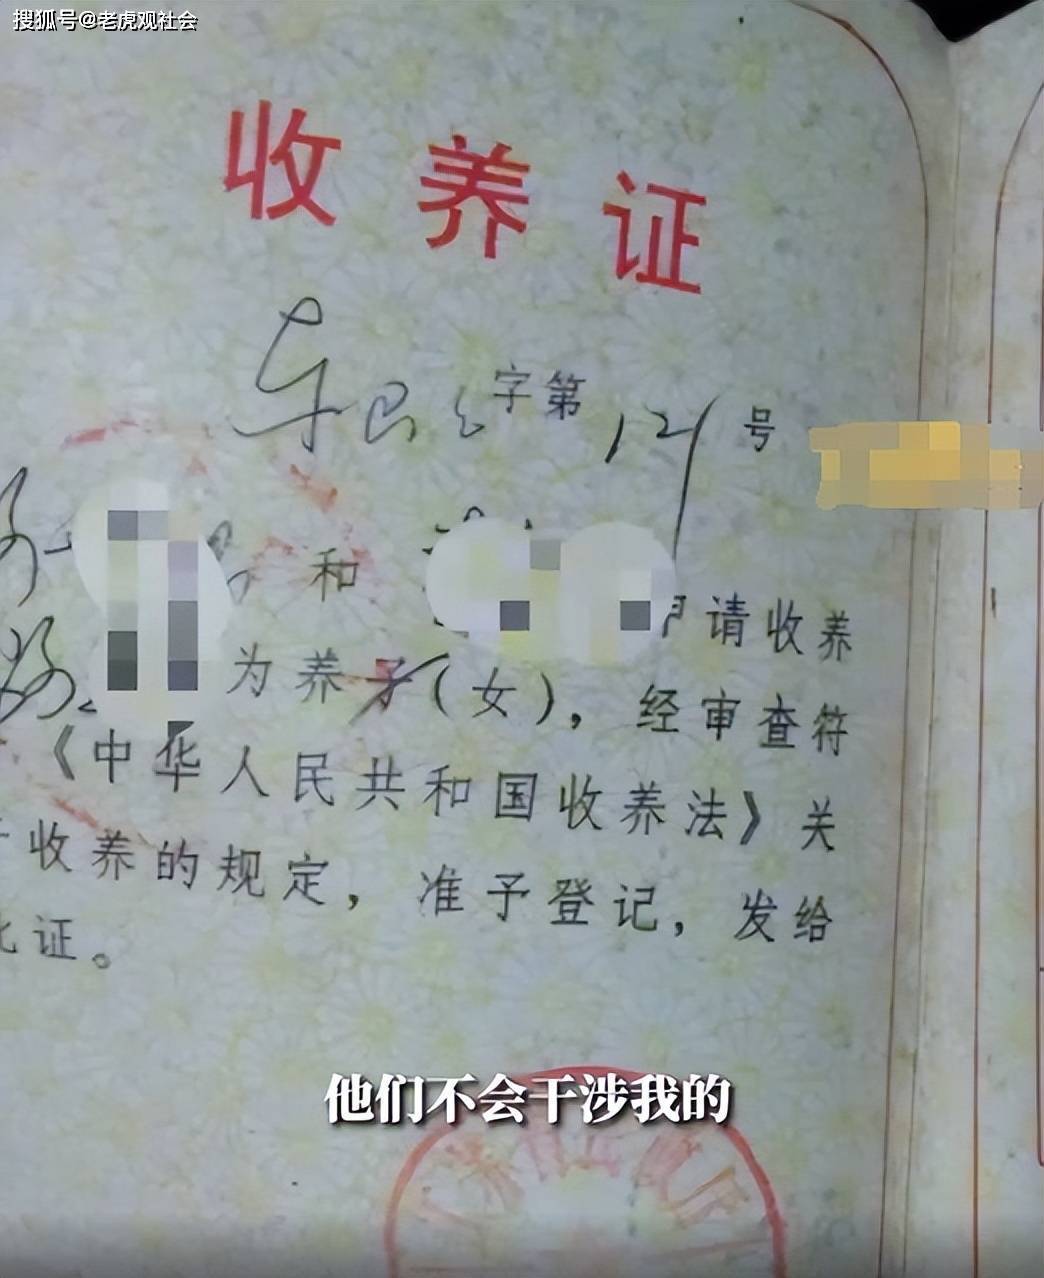 搜狐号@老虎观社会
收养证
字第121号
和
请收养
为养子(女)，经审查符
《中华人民共和国收养法》关
于收养的规定，准予登记，发给
此证。
他们不会干涉我的